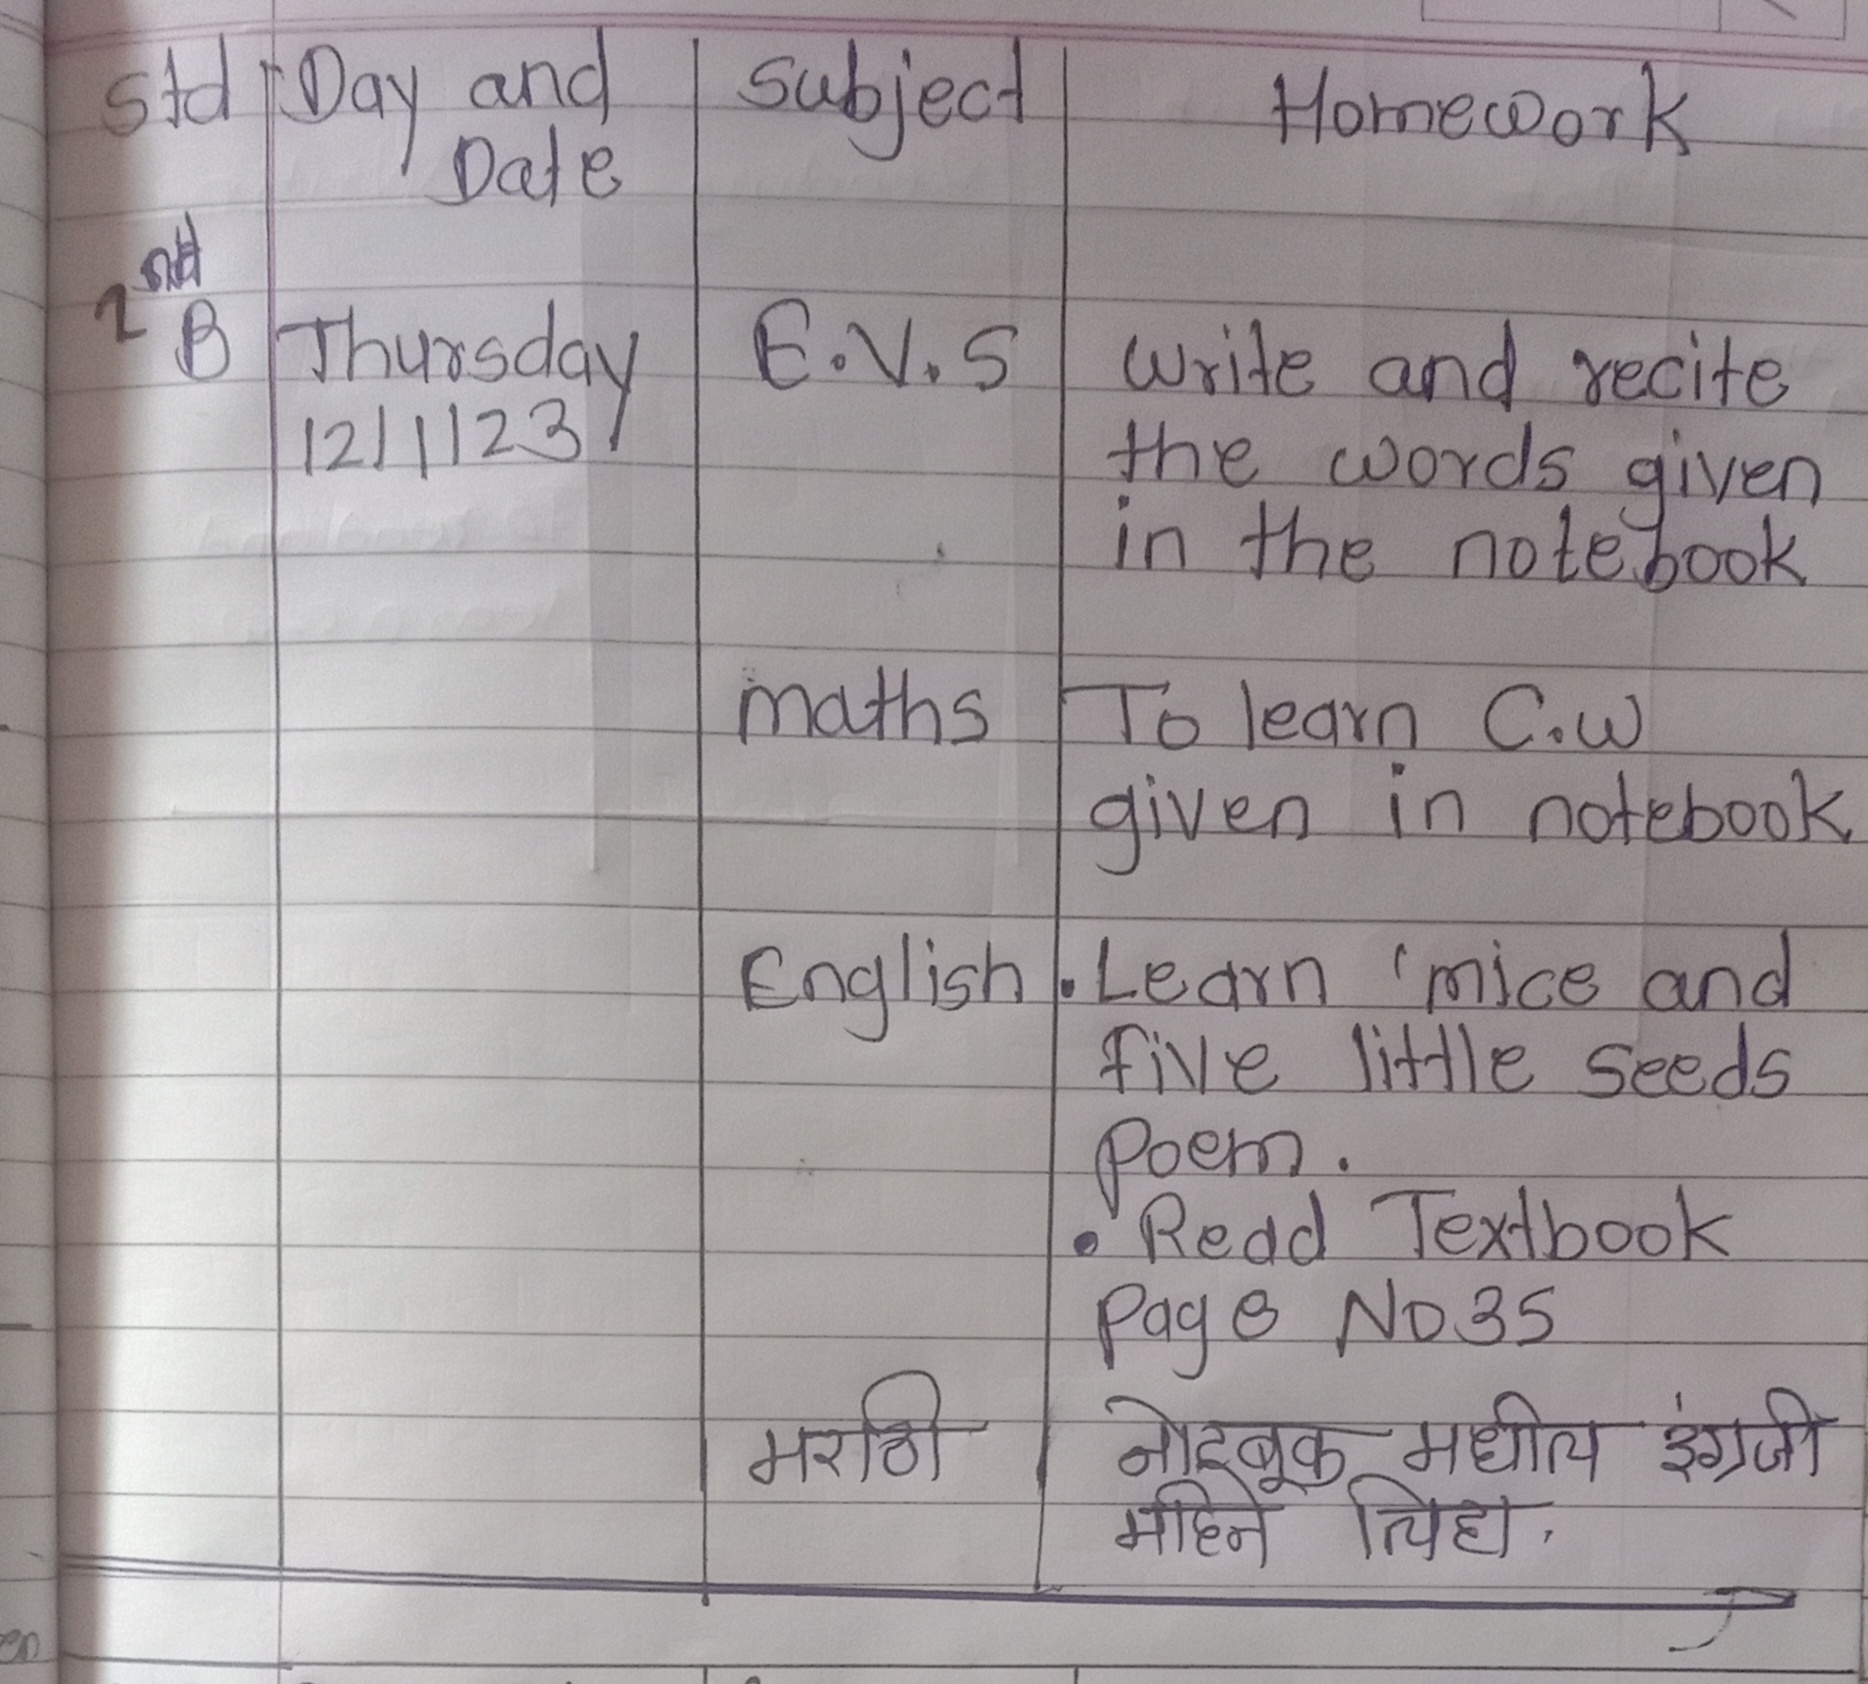 Std Day and Subject Homework
Date
2nd
B Thursday E.V.S write and recite
12/1/23 the words given
in the notebook
maths To learn C.W
given in notebook
English • Learn 'mice and
five little seeds
poem.
• Read Textbook
Page No 35
मराठी नोटबूक मधील इंग्रजी
महिने लिहा.